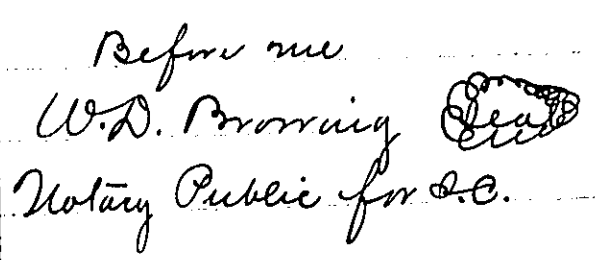 Before me
W.D. Browning Seal
Notary Public for S.C.